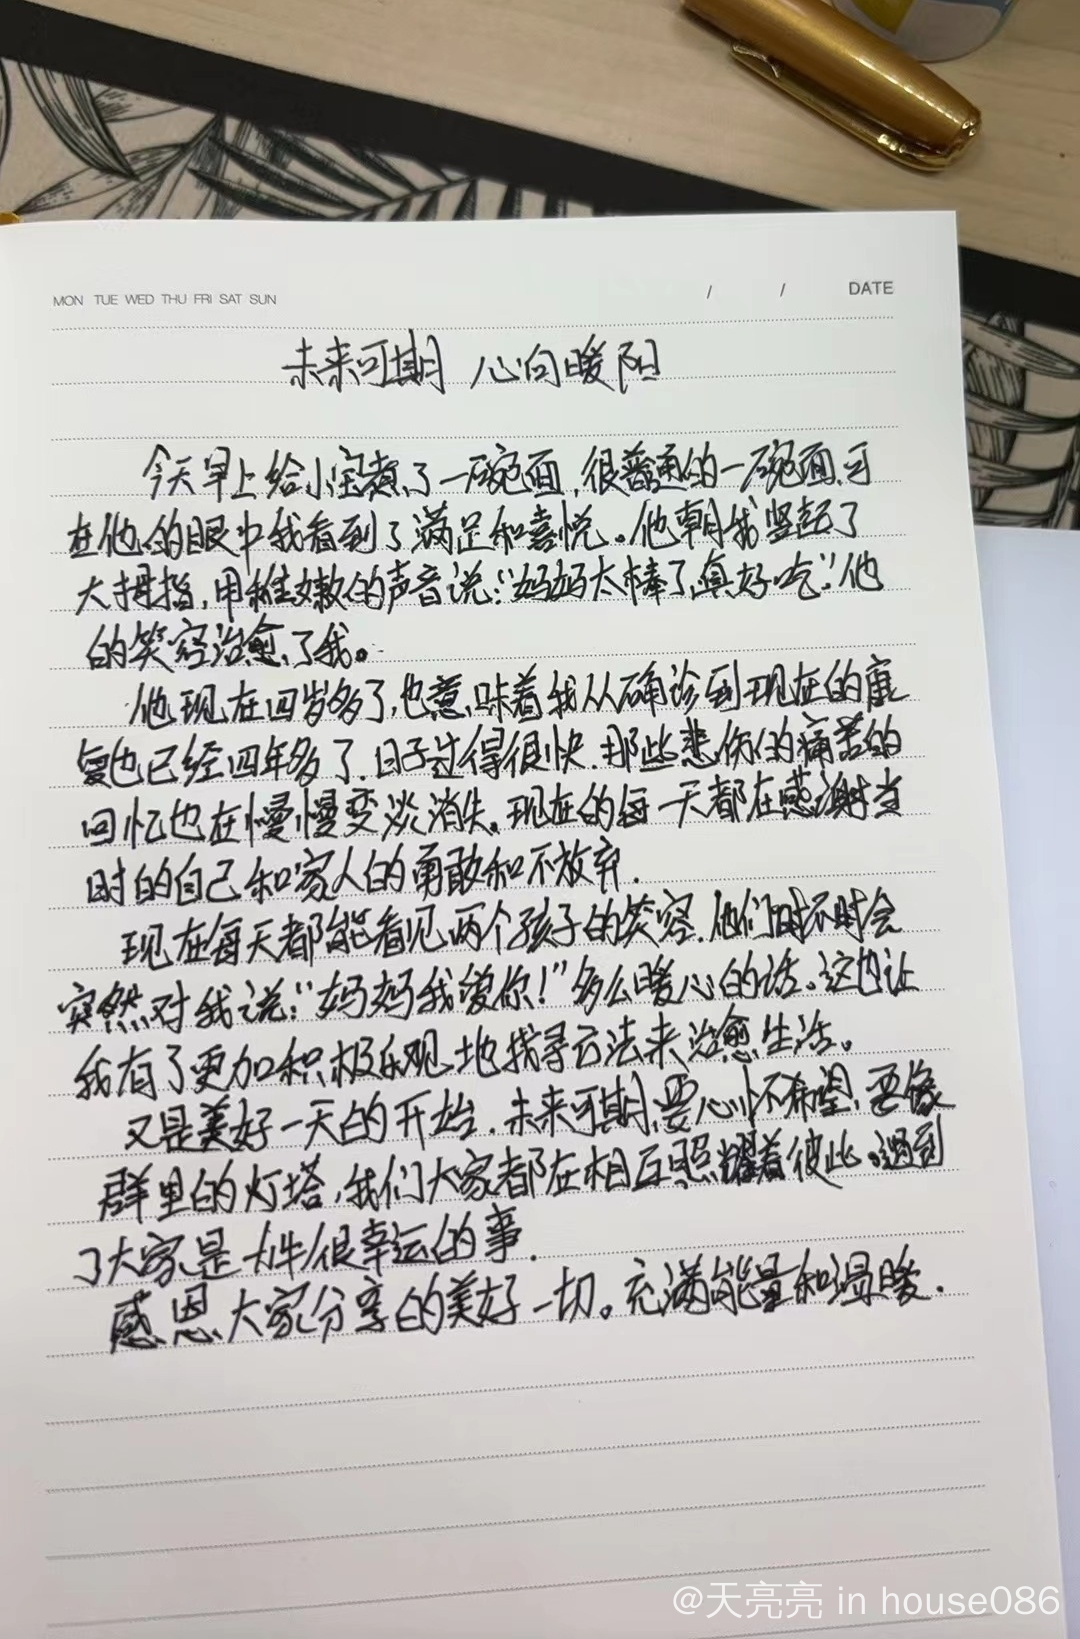 MON TUE WED THU FRI SAT SUN / / DATE
未来可期 心向暖阳
今天早上给小宝煮了一碗面，很普通的一碗面，可
在他的眼中我看到了满足和喜悦。他朝我竖起了
大拇指，用稚嫩的声音说：“妈妈太棒了，真好吃”。他
的笑容治愈了我。
他现在四岁多了，也意味着我从确诊到现在的康
复也已经四年多了．日子过得很快．那些悲伤的痛苦的
回忆也在慢慢变淡消失．现在的每一天都在感谢当
时的自己和家人的勇敢和不放弃．
现在每天都能看见两个孩子的笑容．他们时不时会
突然对我说：“妈妈我爱你！”多么暖心的话。这也让
我有了更加积极乐观地找寻方法来治愈生活。
又是美好一天的开始．未来可期，要心怀希望，要像
群里的灯塔，我们大家都在相互照耀着彼此。遇到
了大家是件很幸运的事．
感恩大家分享的美好一切。充满能量和温暖．
@天亮亮 in house086